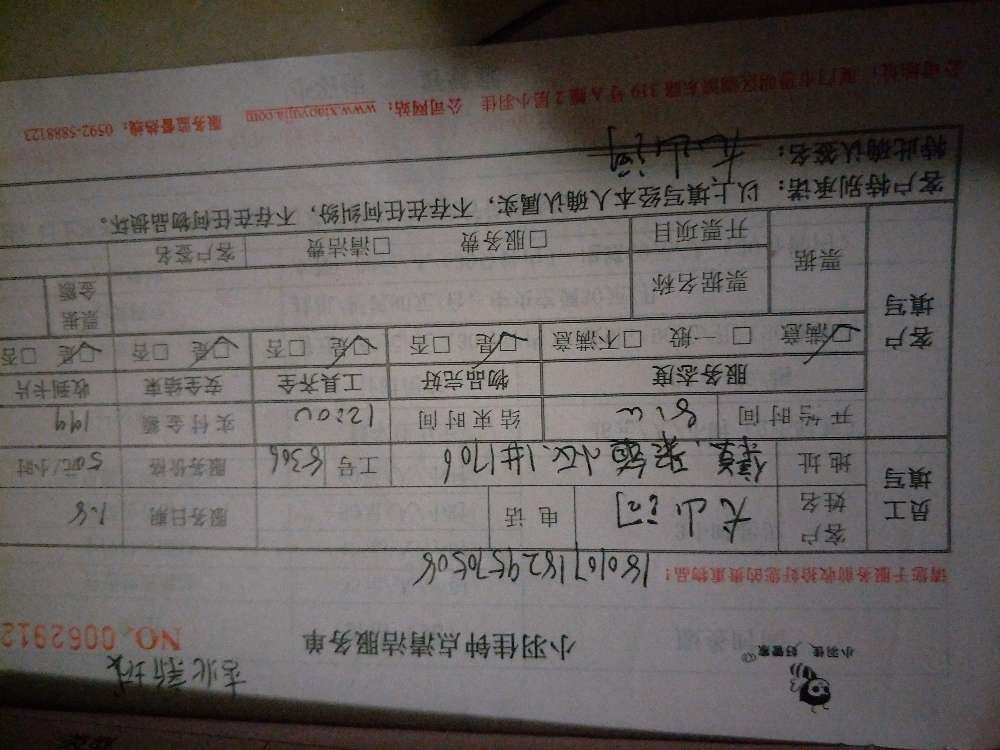 吉北新城
小羽佳 好管家
小羽佳钟点清洁服务单
NO. 0062912
请您于服务前收拾好您的贵重物品!
1801071829570508
员工填写
客户姓名 大山河 电话 服务日期 1.8
地址 1#1706 工号 8306 服务价格 50元/小时
开始时间 结束时间 12:00 实付金额 199
客户填写
服务态度 物品完好 工具齐全 安全结束 收到卡片
☑满意 □一般 □不满意 ☑是 □否 ☑是 □否 ☑是 □否 ☑是 □否
票据 票据名称 票据金额
开票项目 □服务费 □清洁费 客户签名
客户特别承诺:以上填写经本人确认属实,不存在任何纠纷,不存在任何物品损坏。
特此确认签名:大山河
服务监督热线:0592-5888123 公司网站:www.xiaoyujia.com 公司地址:厦门市思明区湖滨东路 319 号 A 幢 2 层小羽佳